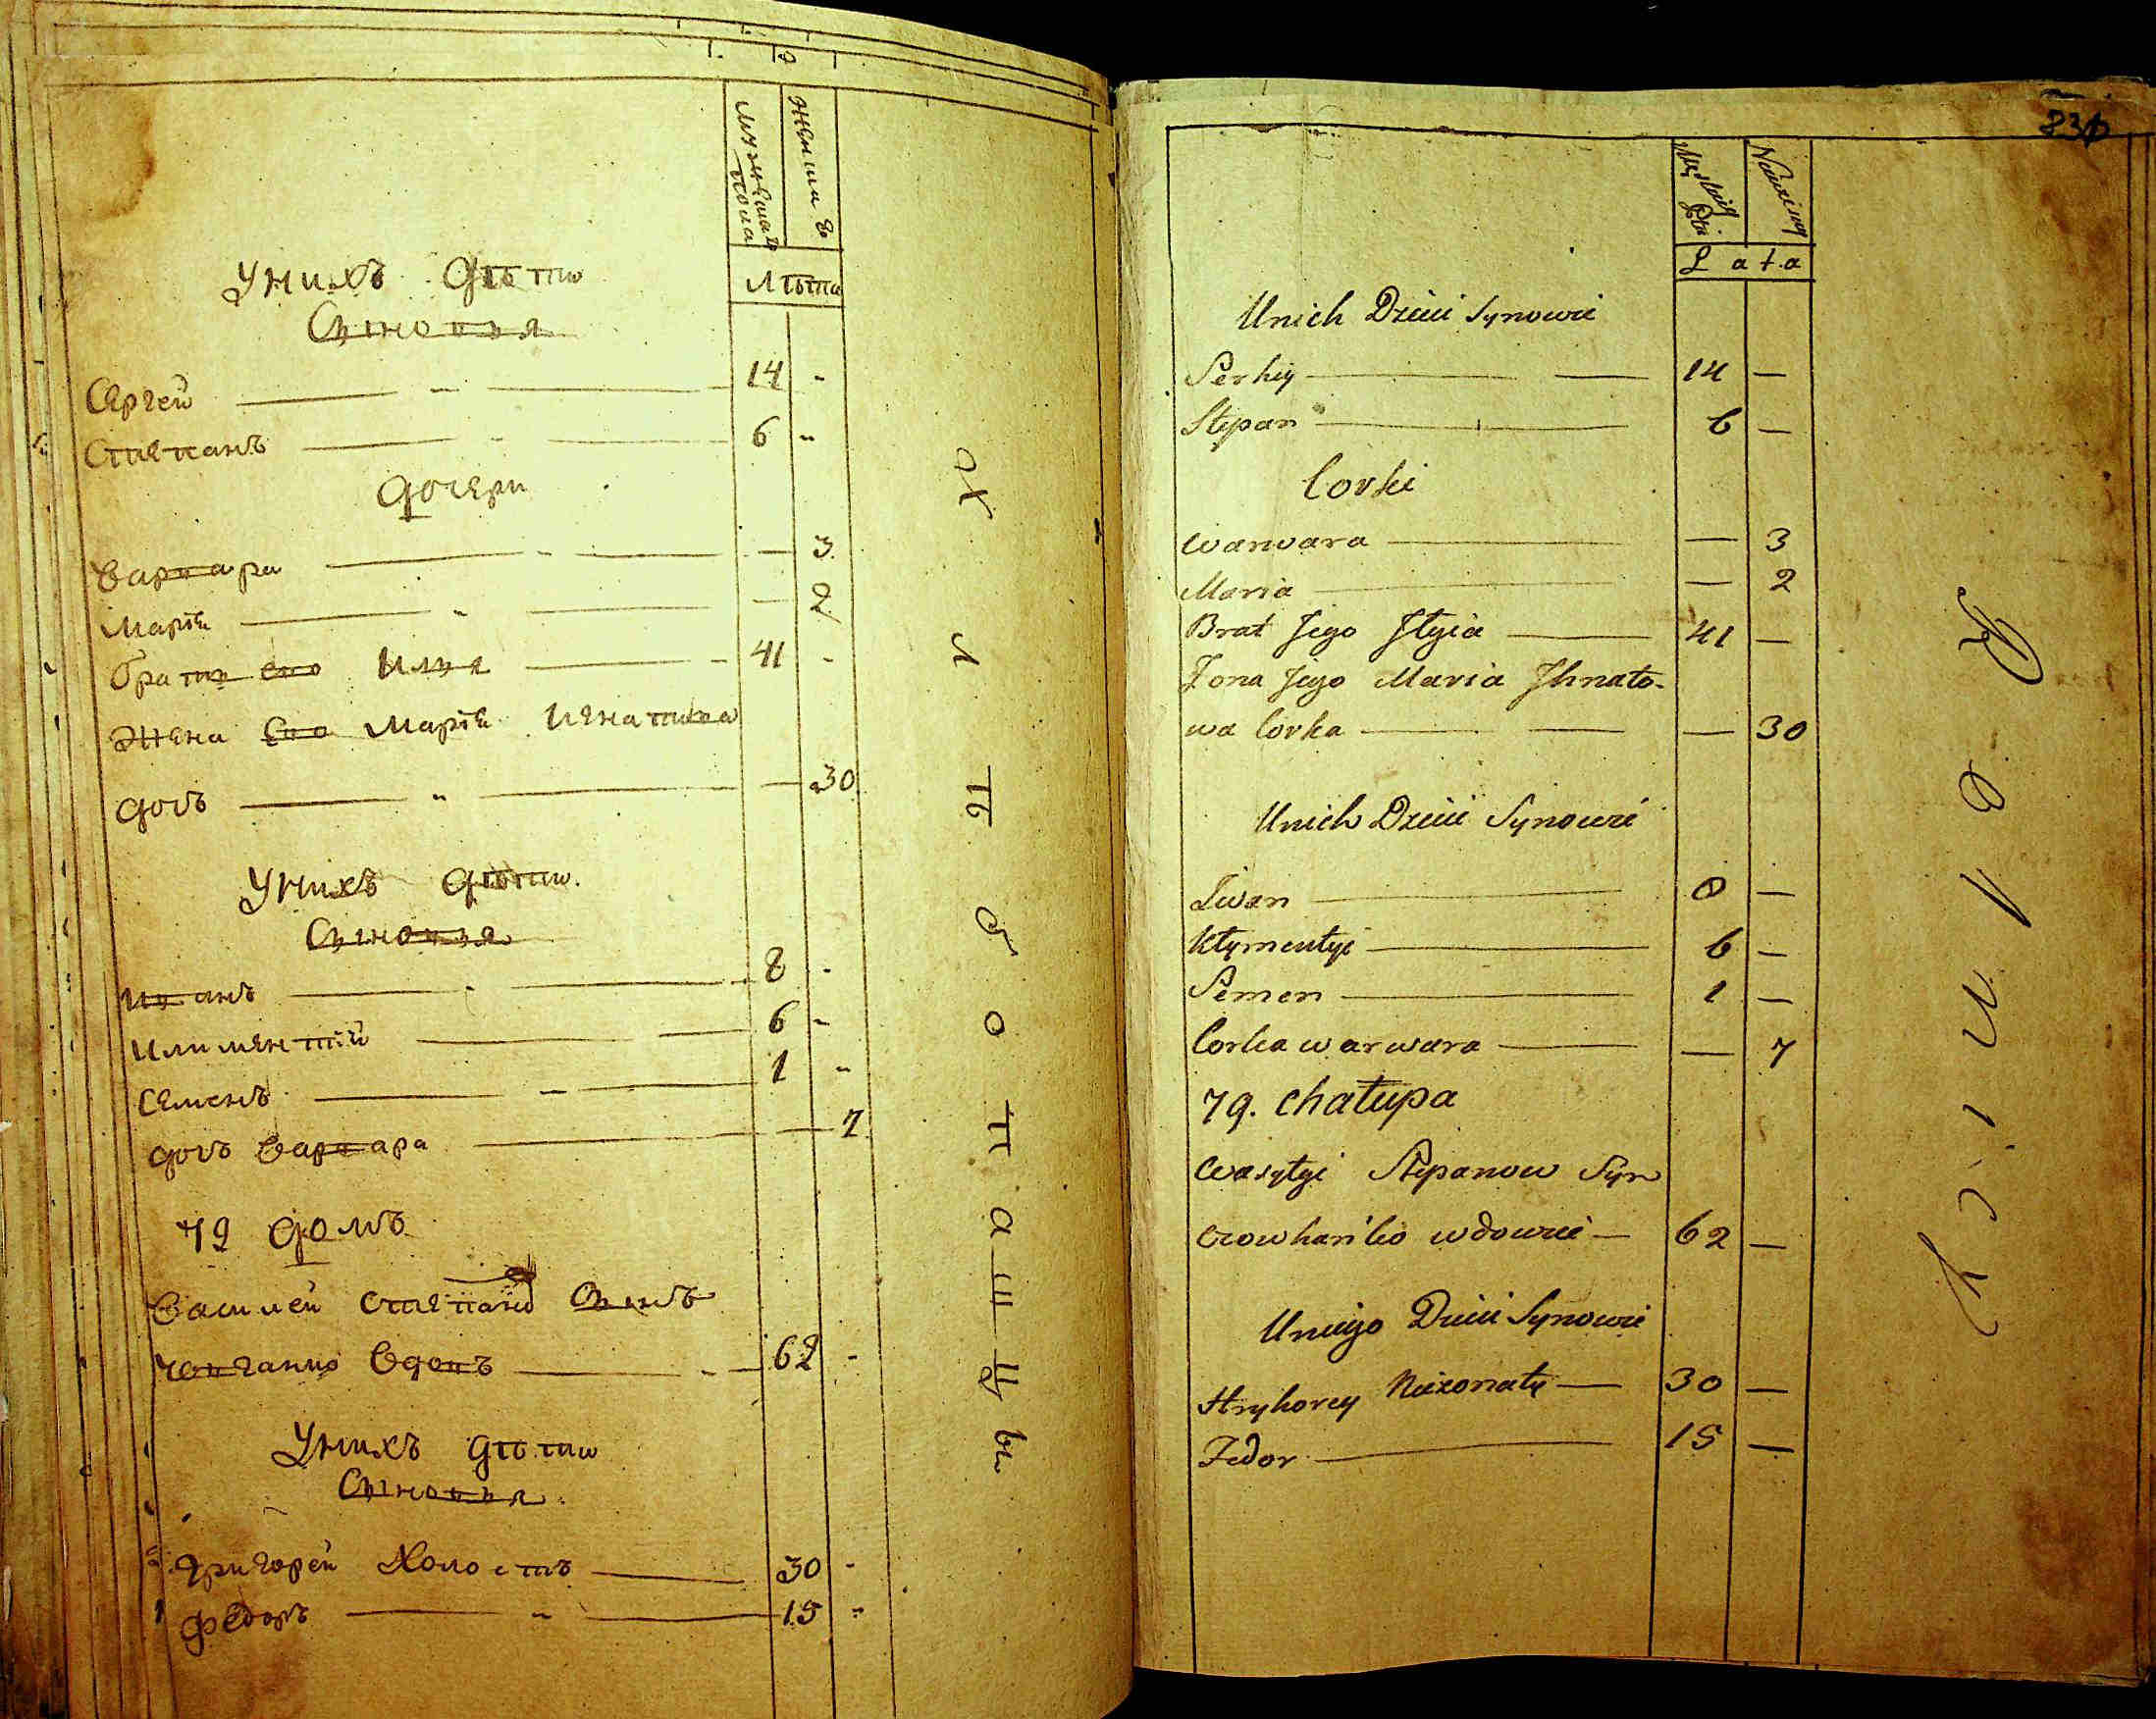 мужеска
пола
женска
Лѣта
Унихъ дѣти
Сыновья
Сергей — 14 -
Степанъ — 6 -
дочери
Варвара — — 3
Марія — — 2
братъ его Илья — 41 -
Жена его Марія Игнатова
дочь — — 30
Унихъ дѣти
Сыновья
Иванъ — 8 -
Климентій — 6 -
Семенъ — 1 -
дочь Варвара — — 7
79 домъ
Василей Степановъ Сынъ
вдовъ — 62 -
Унихъ дѣти
Сыновья
Григорей Холостъ — 30 -
Федоръ — 15 -
Хлѣбопашцы
Męskiey
Płci
Lata
Unich Dzieci Synowie
Serhiy — 14 —
Stepan — 6 —
Corki
Warwara — — 3
Maria — — 2
Brat Jego Jłyia — 41 —
Żona Jego Maria Jhnato-
wa Corka — — 30
Unich Dzieci Synowie
Iwan — 8 —
Kłymentyi — 6 —
Semen — 1 —
Corka Warwara — — 7
79. Chałupa
Wasyłyi Stepanow Syn
Czowhan'ko wdowiec — 62 —
Uniego Dzieci Synowie
Hryhorey Nieżonaty — 30 —
Fedor — 15 —
Rolnicy